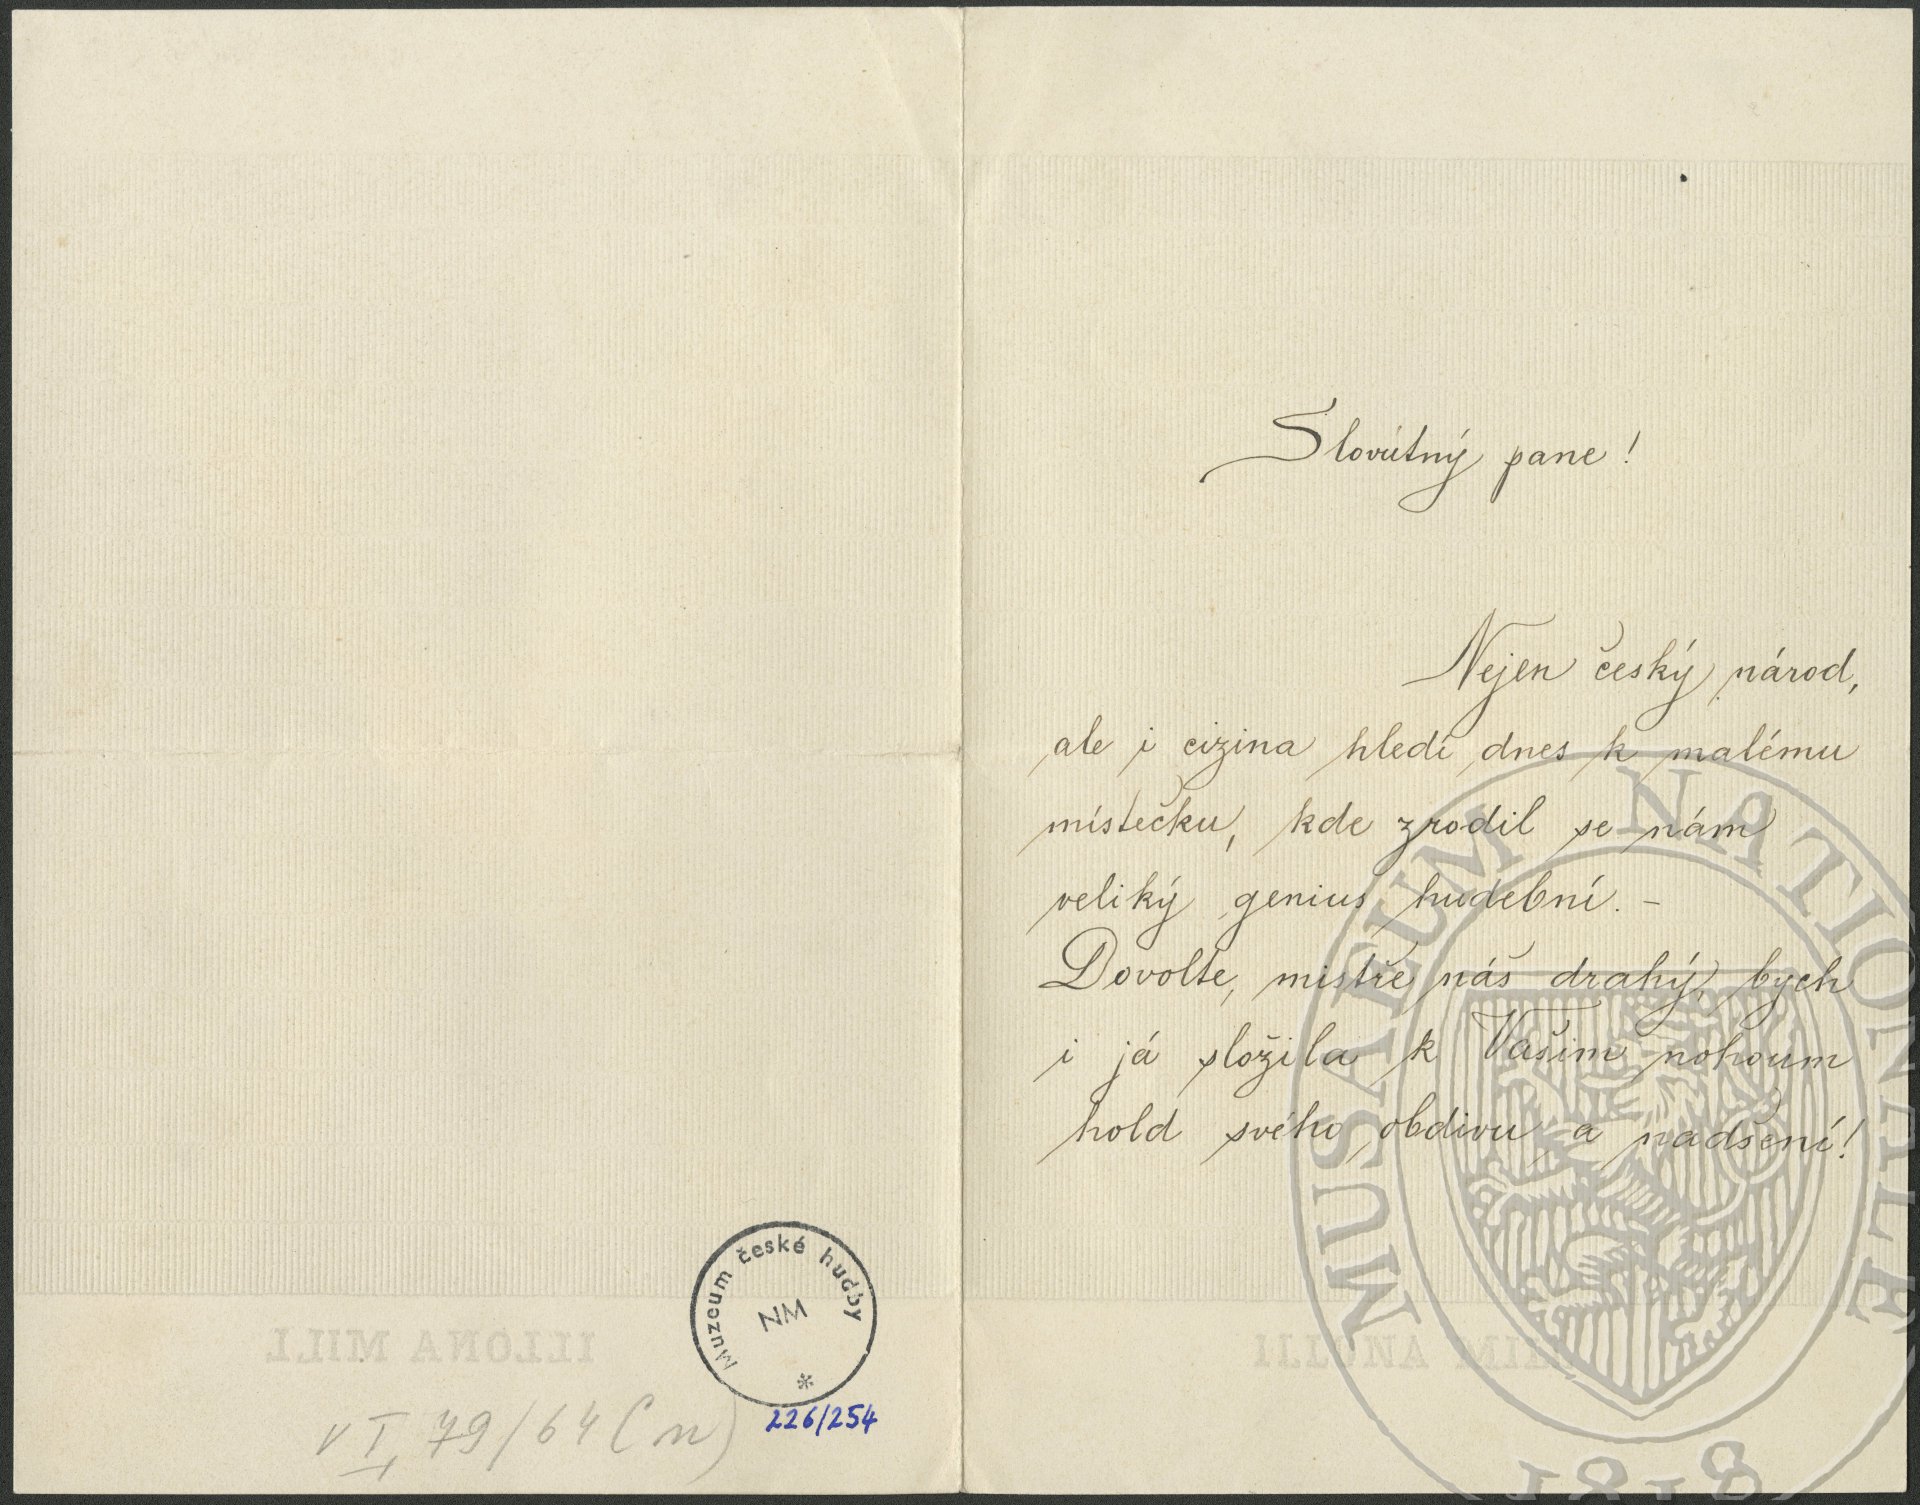 Slovútný pane!
Nejen český národ,
ale i cizina hledí dnes k malému
místečku, kde zrodil se nám
veliký genius hudební. –
Dovolte, mistře náš drahý, bych
i já složila k Vašim nohoum
hold svého obdivu a nadšení!
Muzeum české hudby
NM
*
226/254
ILLONA MILL
ILLONA MILL
MUSAEUM NATIONALE
1818